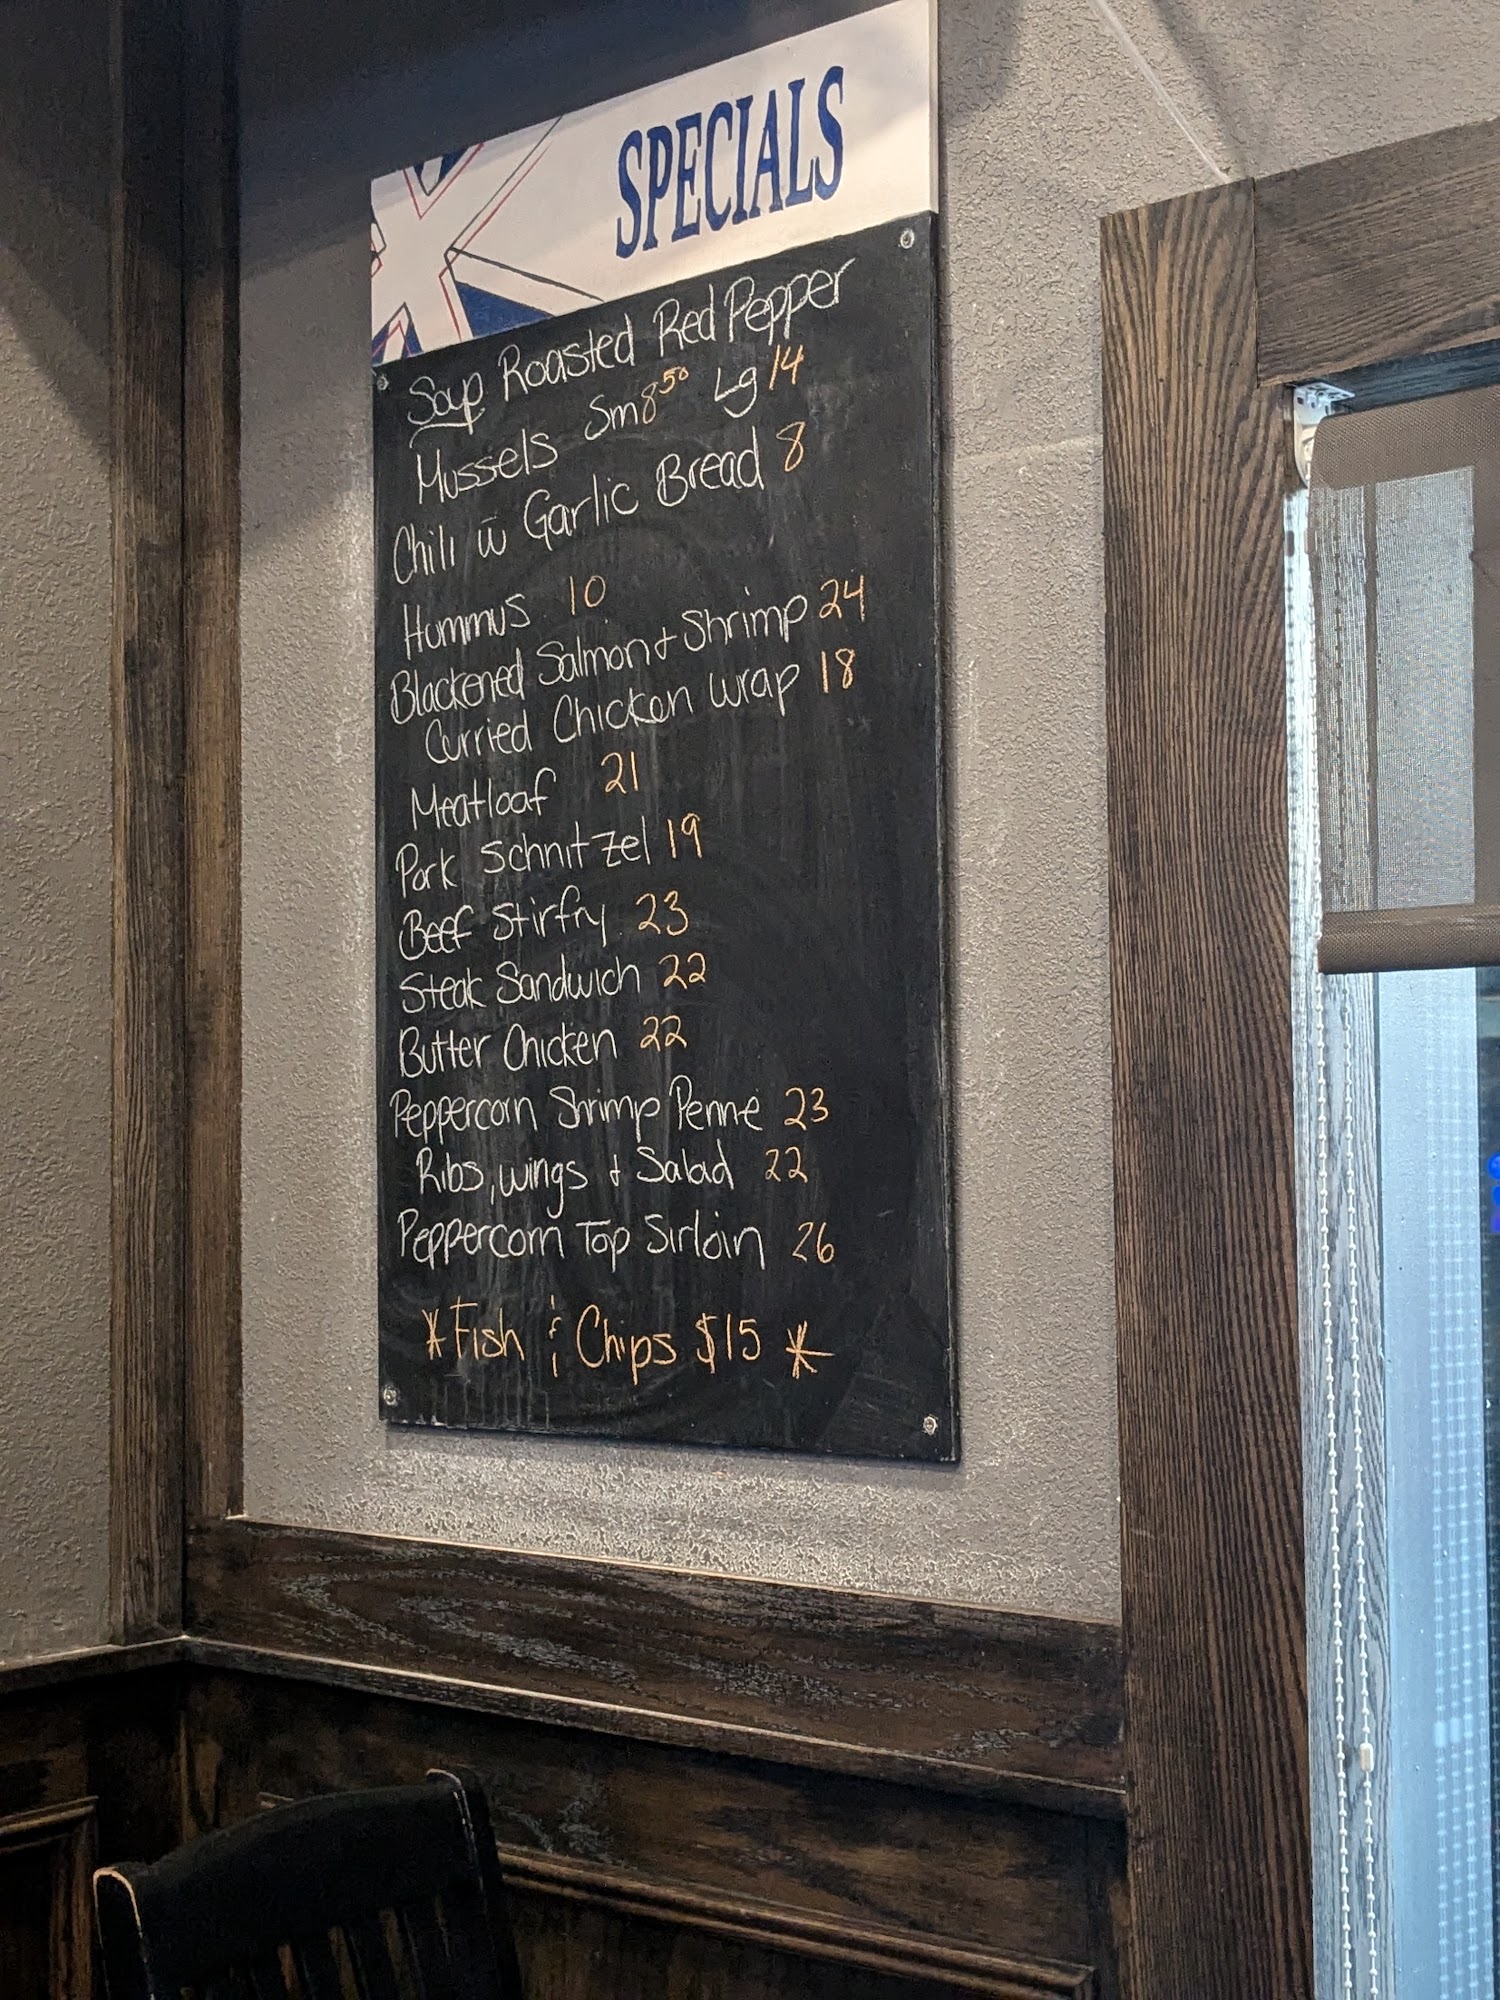 SPECIALS
Soup Roasted Red Pepper
Mussels Sm 8⁵⁰ Lg 14
Chili w̄ Garlic Bread 8
Hummus 10
Blackened Salmon + Shrimp 24
Curried Chicken Wrap 18
Meatloaf 21
Pork Schnitzel 19
Beef Stirfry 23
Steak Sandwich 22
Butter Chicken 22
Peppercorn Shrimp Penne 23
Ribs, wings + Salad 22
Peppercorn Top Sirloin 26
*Fish & Chips $15 *